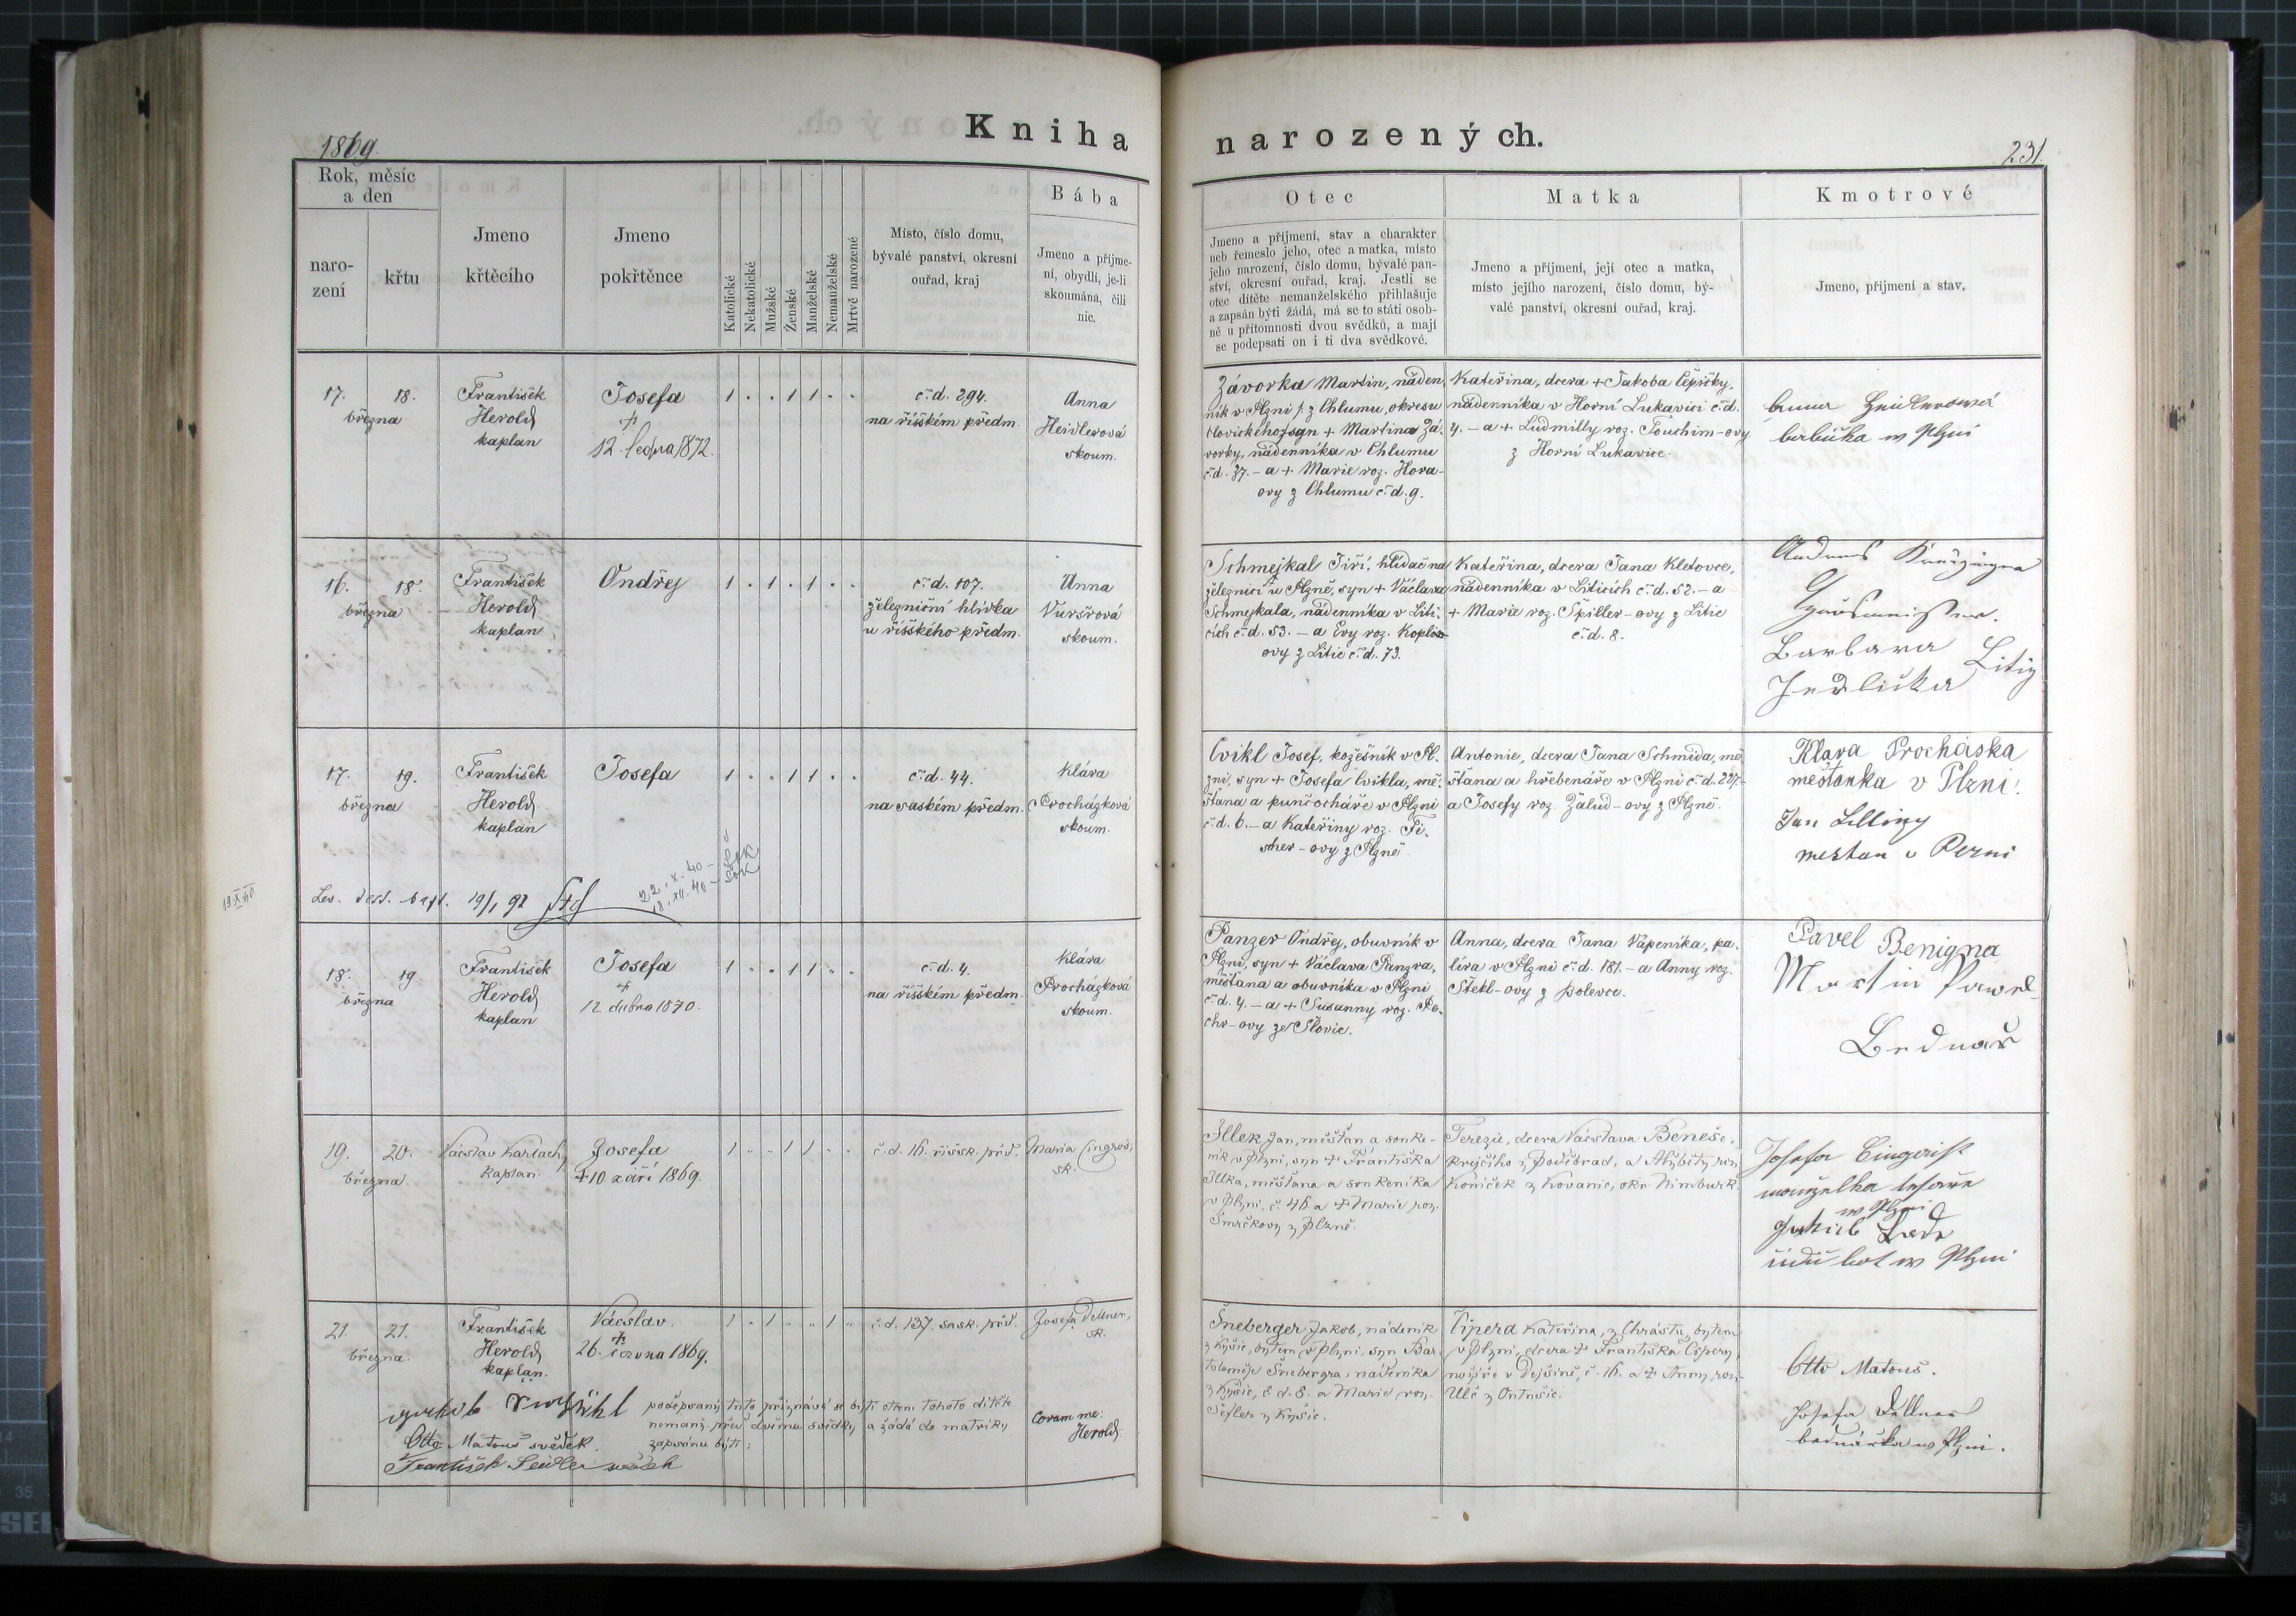 1869
Kniha
narozených.
231
Rok, měsíc
a den
naro-
zení
křtu
Jmeno
křtěcího
Jmeno
pokřtěnce
Katolické
Nekatolické
Mužské
Ženské
Manželské
Nemanželské
Mrtvě narozené
Místo, číslo domu,
bývalé panství, okresní
ouřad, kraj
Bába
Jmeno a příjme-
ní, obydlí, je-li
skoumána, čili
nic.
Otec
Jmeno a příjmení, stav a charakter
neb řemeslo jeho, otec a matka, místo
jeho narození, číslo domu, bývalé pan-
ství, okresní ouřad, kraj. Jestli se
otec dítěte nemanželského přihlašuje
a zapsán býti žádá, má se to státi osob-
ně u přítomnosti dvou svědků, a mají
se podepsati on i ti dva svědkové.
Matka
Jmeno a příjmení, její otec a matka,
místo jejího narození, číslo domu, bý-
valé panství, okresní ouřad, kraj.
Kmotrové
Jmeno, příjmení a stav.
17. 18.
března
František
Herold
kaplan
Josefa
+
12. ledna 1872.
1 . . 1 1 . .
č.d. 294.
na říšském předm.
Anna
Heidlerová
skoum.
Závorka Martin, náden-
ník v Plzni z Chlumu, okresu
Blovického, syn + Martina Zá-
vorky, nádenníka v Chlumu
č.d. 37. – a + Marie roz. Hora-
ovy z Chlumu č.d. 9.
Kateřina, dcera + Jakoba Čepičky,
nádenníka v Horní Lukavici č.d.
4. – a + Ludmilly roz. Touchim-ovy
z Horní Lukavice.
babička w Plzni
16. 18.
března
František
Herold
kaplan
Ondřej
1 . 1 . 1 . .
č.d. 107.
železniční hlídka
u říšského předm.
Anna
Vuršrová
skoum.
Schmejkal Jiří, hlídač na
železnici u Plzně, syn + Václava
Schmejkala, nádenníka v Liti-
cích č.d. 53. – a Evy roz.
ovy z Litic č.d. 73.
Kateřina, dcera Jana Kletovce,
nádenníka v Liticích č.d. 52. – a
+ Marie roz. Spiller-ovy z Litic
č.d. 8.
Barbara
Jedlička Litiz
17. 19.
března
František
Herold
kaplan
Josefa
1 . . 1 1 . .
č.d. 44.
na saském předm.
Klára
Procházková
skoum.
Cvikl Josef, kožešník v Pl-
zni, syn + Josefa Cvikla, mě-
šťana a punčocháře v Plzni
č.d. 6. – a Kateřiny roz. Fi-
scher-ovy z Plzně.
Antonie, dcera Jana Schmida, mě-
šťana a hřebenáře v Plzni č.d. 227.–
a Josefy roz. Žalud-ovy z Plzně.
Klara Prochaska
mešťanka v Plzni.
Jan
mestan v
19/1 92
22.X.40
18.XII.40
18.
19.
března
František
Herold
kaplan
Josefa
+
12 dubna 1870.
1 . . 1 1 . .
č.d. 4.
na říšském předm.
Klára
Procházková
skoum.
Panzer Ondřej, obuvník v
Plzni, syn + Václava Panzra,
měšťana a obuvníka v Plzni
č.d. 4. – a + Susanny roz. Pe-
chr-ovy ze Slovic.
Anna, dcera Jana Vápeníka, pa-
líra v Plzni č.d. 181. – a Anny roz.
Štekl-ovy z Bolevce.
Pavel Benigna
Martin Pawel
Bednař
19. 20.
března
Václav Karlach,
kaplan.
Josefa
+ 10. září 1869.
1 . . 1 1 . .
č.d. 16. říšsk. před.
Maria Cingroš,
sk.
Illek Jan, měšťan a souke-
ník v Plzni, syn + Františka
Illka, měšťana a soukeníka
v Plzni, č. 46 a + Marie roz.
Smrčkovy z Plzně.
Terezie, dcera Václava Beneše,
krejčího z Poděbrad, a Alžběty roz.
Koníček z Kovanic, okr. Nimburk.
Josefa
manželka tesaře
w Plzni
Jakub
w Plzni
21. 21.
března.
František
Herold
kaplan.
Václav.
+
26. června 1869.
1 . 1 . . 1 .
č.d. 137. sask. před.
Josefa Dellner,
sk.
Šneberger Jakob, nádeník
z Kyšic, bytem v Plzni, syn Bar-
toloměje Šnebergra, nádeníka
z Kyšic, č.d. 8. a Marie roz.
Šefler z Kyšic.
Čiperd Kateřina, z Chrástu, bytem
v Plzni, dcera + Františka Čipery,
nožíře v Dejšině, č. 16. a + Anny roz.
Ulč z Antušic.
Otto Matouš.
Josefa Dellner
w Plzni.
podepsaný tuto přiznává se býti otcem tohoto dítěte
nemanž. před dvěma svědky a žádá do matriky
zapsánu býti:
Otto Matouš svědek.
František Seidler svědek
Coram me:
Herold